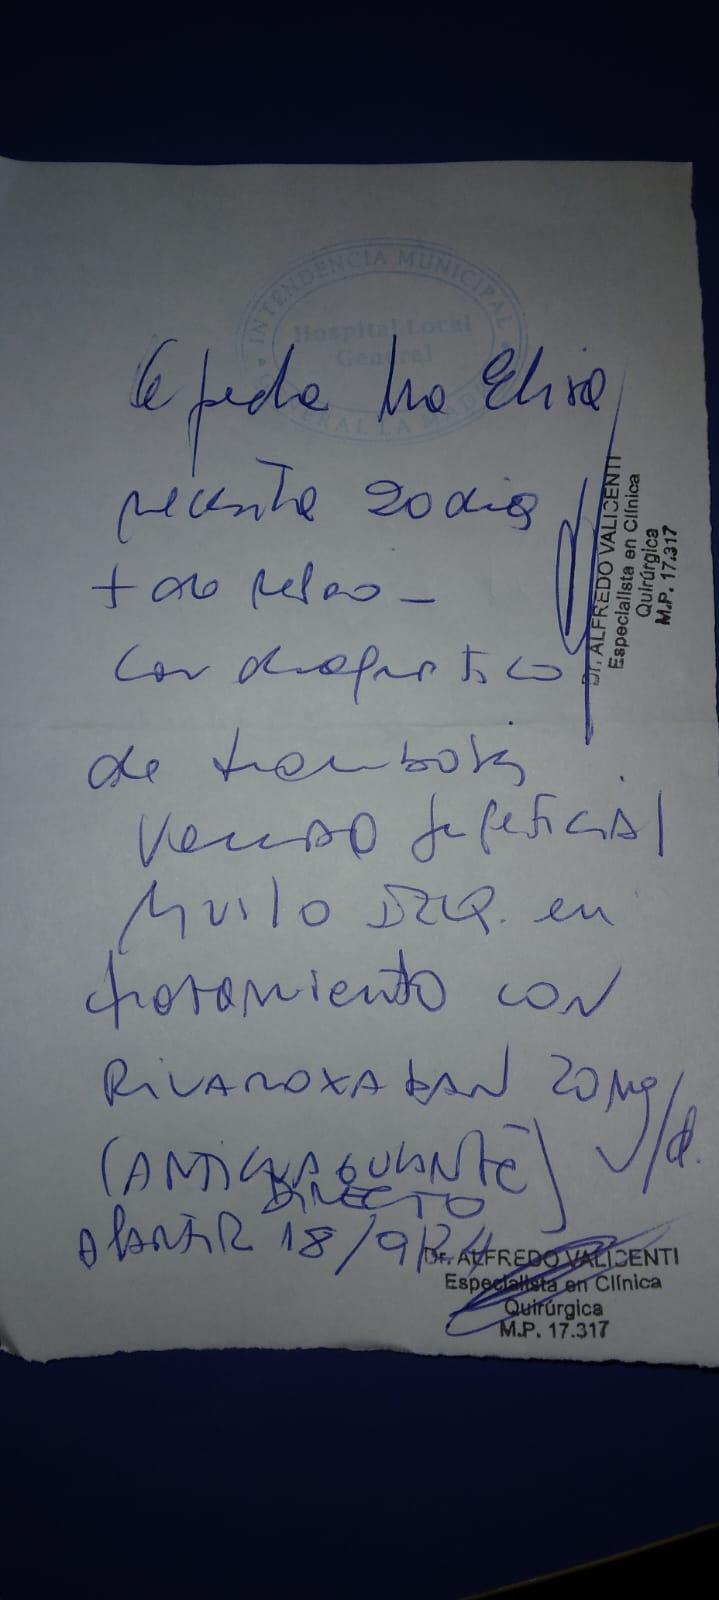 INTENDENCIA MUNICIPAL
Hospital Local
General
GENERAL LA MADRID
Cepeda Ma Elisa
necesita 20 dias
+ de reposo -
con diagnostico
de trombosis
Venosa superficial
Muslo IZQ. en
tratamiento con
RIVAROXABAN 20 mg/d.
(ANTICOAGULANTE)
DIRECTO
A PARTIR 18/9/24
Dr. ALFREDO VALICENTI
Especialista en Clínica
Quirúrgica
M.P. 17.317
Dr. ALFREDO VALICENTI
Especialista en Clínica
Quirúrgica
M.P. 17.317